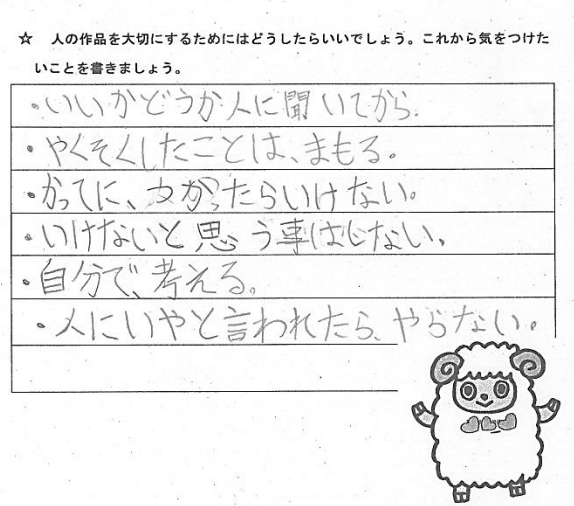 ☆ 人の作品を大切にするためにはどうしたらいいでしょう。これから気をつけた
いことを書きましょう。
・いいかどうか人に聞いてから。
・やくそくしたことは、まもる。
・かってに、つかったらいけない。
・いけないと思う事はしない。
・自分で、考える。
・人にいやと言われたら、やらない。